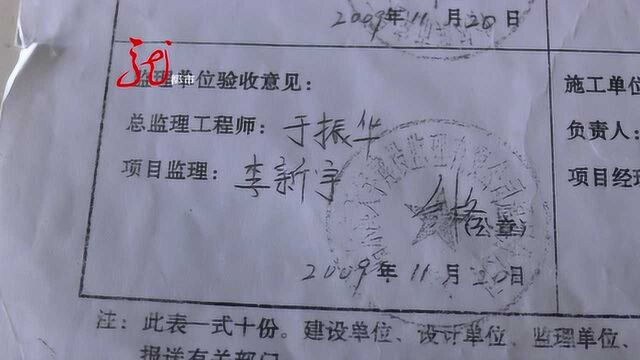 2009年11月20日
监理单位验收意见：
施工单位
总监理工程师：于振华
负责人：
项目监理：李新宇
项目经理
合格
(公章)
2009年11月20日
注：此表一式十份。建设单位、设计单位、监理单位、
报送有关部门